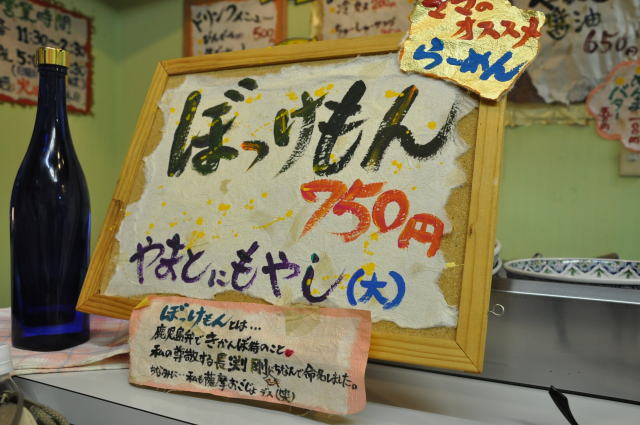 営業時間
11:30〜
ドリンクメニュー
500
200
ママの
オススメ
らーめん
醤油
650
ぼっけもん
750円
やまとにもやし(大)
ぼっけもんとは…
鹿児島弁できかん坊時のこと
私の尊敬する長渕 剛にちなんで命名しました。
ちなみに…私も薩摩おごじょデス(笑)